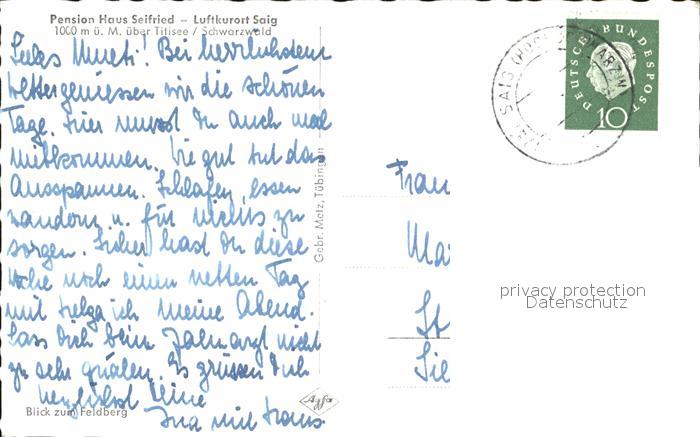 Pension Haus Seifried – Luftkurort Saig
1000 m ü. M. über Titisee / Schwarzwald
Liebes Mutti! Bei herrlichstem
Wetter geniessen wir die schönen
Tage. Hier musst Du auch mal
mitkommen. Wie gut tut das
Ausspannen. Schlafen, essen
wandern u. für nichts zu
sorgen. Sicher hast Du diese
Woche noch einen netten Tag
mit Helga ich meine Abend.
Lass Dich beim Zahnarzt nicht
zu sehr quälen. Es grüssen Dich
herzlichst Deine
Blick zum Feldberg
Ina mit Hans
Gebr. Metz, Tübingen
Agfa
DEUTSCHE BUNDESPOST
10
SAIG
Frau
Ma
St
Sie
privacy protection
Datenschutz